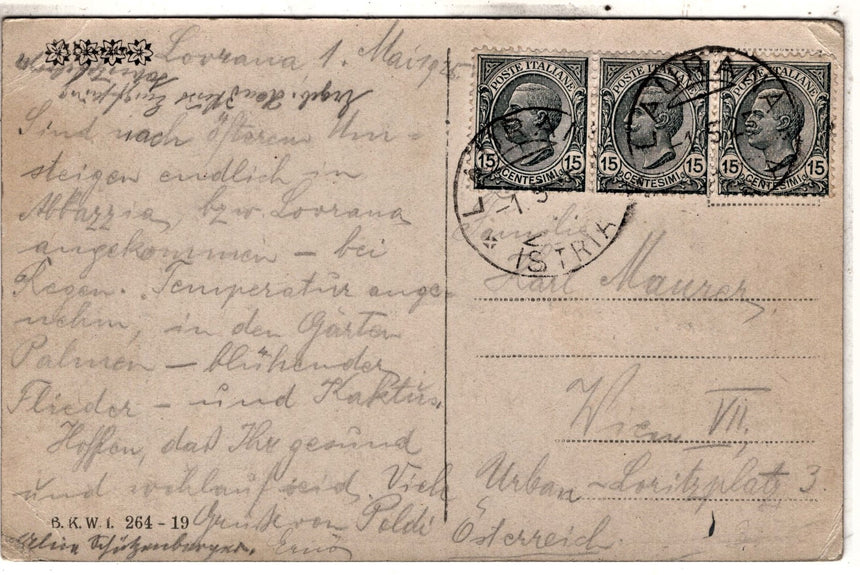 Lovrana 1. Mai 1925
Sind nach öfterem Um-
steigen endlich in
Abbazzia, bzw. Lovrana
angekommen – bei
Regen. Temperatur ange-
nehm, in den Gärten
Palmen – blühender
Flieder – und Kaktus.
Hoffen, daß Ihr gesund
und wohlauf seid. Viele
Grüße von Poldi
B.K.W.I. 264-19
Schützenberger. Ernö
POSTE ITALIANE
15 CENTESIMI 15
POSTE ITALIANE
15 CENTESIMI 15
POSTE ITALIANE
15 CENTESIMI 15
LAURANA
ISTRIA
LAURANA
Familie
Karl Maurer,
Wien VII,
Urban-Loritzplatz 3
Österreich.